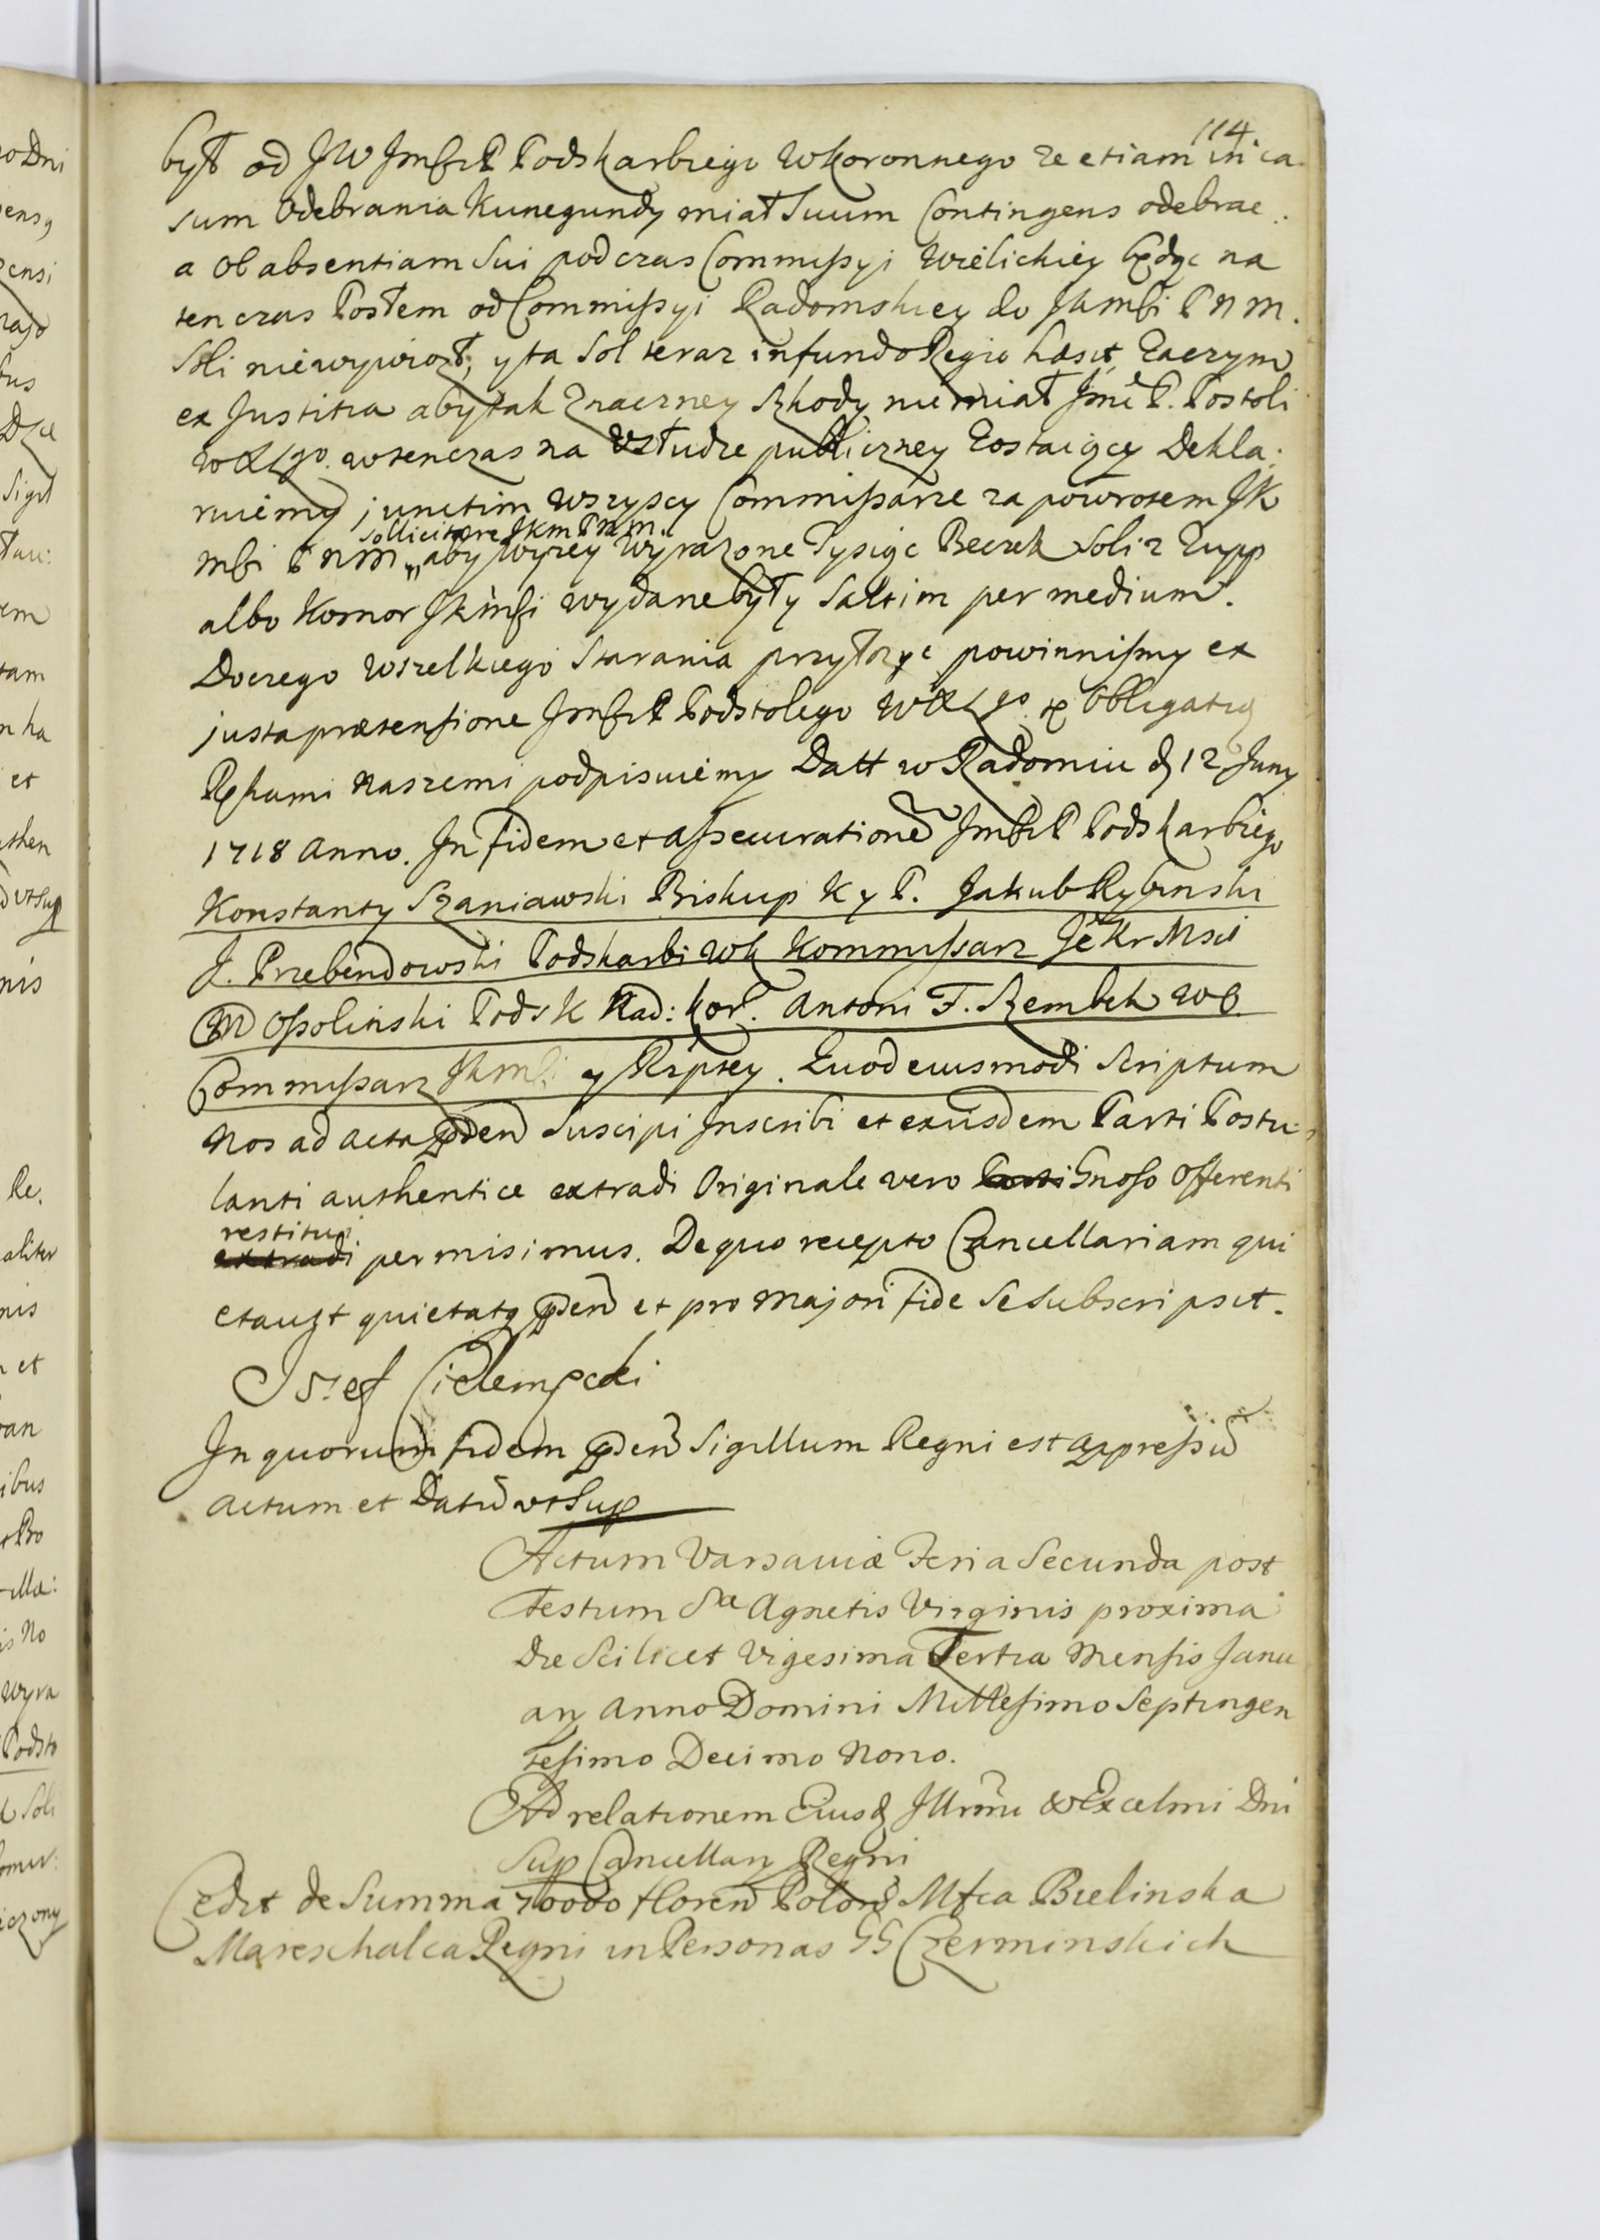 114.
był od JW JmśćP Podskarbiego Wkoronnego ze etiam in ca
sum Odebrania Kunegundy miał Suum Contingens odebrac.
a Ob absentiam Sui podczas Commissyi Wielickiey będąc na
ten czas Posłem od Commissyi Radomskiey do JKmści P N M.
Soli niewywiozł, y ta Sol teraz in fundo Regio hæsit, Zaczym
ex Justitia aby tak Znaczney Szkody niemiał Jmć P. Postoli
WXLgo. wtenczas na Usłudze publiczney Zostaiący Dekla:
ruiemy junctim wszyscy Commissarze za powrotem JK
sollicitare JKm P N M.
mści P N M „ aby wyzey Wyrazone Tysiąc Beczek Soli z Zupp
albo Komor JKmści wydane były Saltim per medium.
Doczego wszelkiego Starania przyłozyć powinnismy ex
justa prætensione JmśćP Podstolego WXLgo. et Obligatią
Rękami naszemi podpisuiemy Datt w Radomiu d 12 Juny
1718 Anno. In fidem et assecurationē JmśćP Podskarbiego
Konstanty Szaniawski Biskup K y P. Jakub Rybinski
J. Przebendowski Podskarbi WK Kommissarz Jẽ Kr Mści
M Ossolinski Pods K Nad: Kor. Antoni F. Szembek WO
Commissarz JKmści y Rzptey. Quod eiusmodi Scriptum
Nos ad Acta pden Suscipi Inscribi et exiisdem Parti Postu
lanti authentice extradi Originale vero Parti Gnoso Offerenti
restitui
extradi permisimus. De quo recepto Cancellariam qui
etauit quietatq pden et pro Majori fide Se Subscripsit.
Jozef Cielempcki
In quorum fidem pden Sigillum Regni est appressū
Actum et Datū ut Sup
Actum Varsaviæ Feria Secunda post
Festum Sæ Agnetis Virginis proxima
Die Scilicet Vigesima Tertia Mensis Janu
ary Anno Domini Millesimo Septingen
tesimo Decimo Nono.
Ad relationem Eiusd Illrmi & Excelmi Dni
Sup Cancellary Regni
Cedit de Summa 70000 floren Polon Mfca Bielinska
Mareschalca Regni in Personas GG Czerminskich